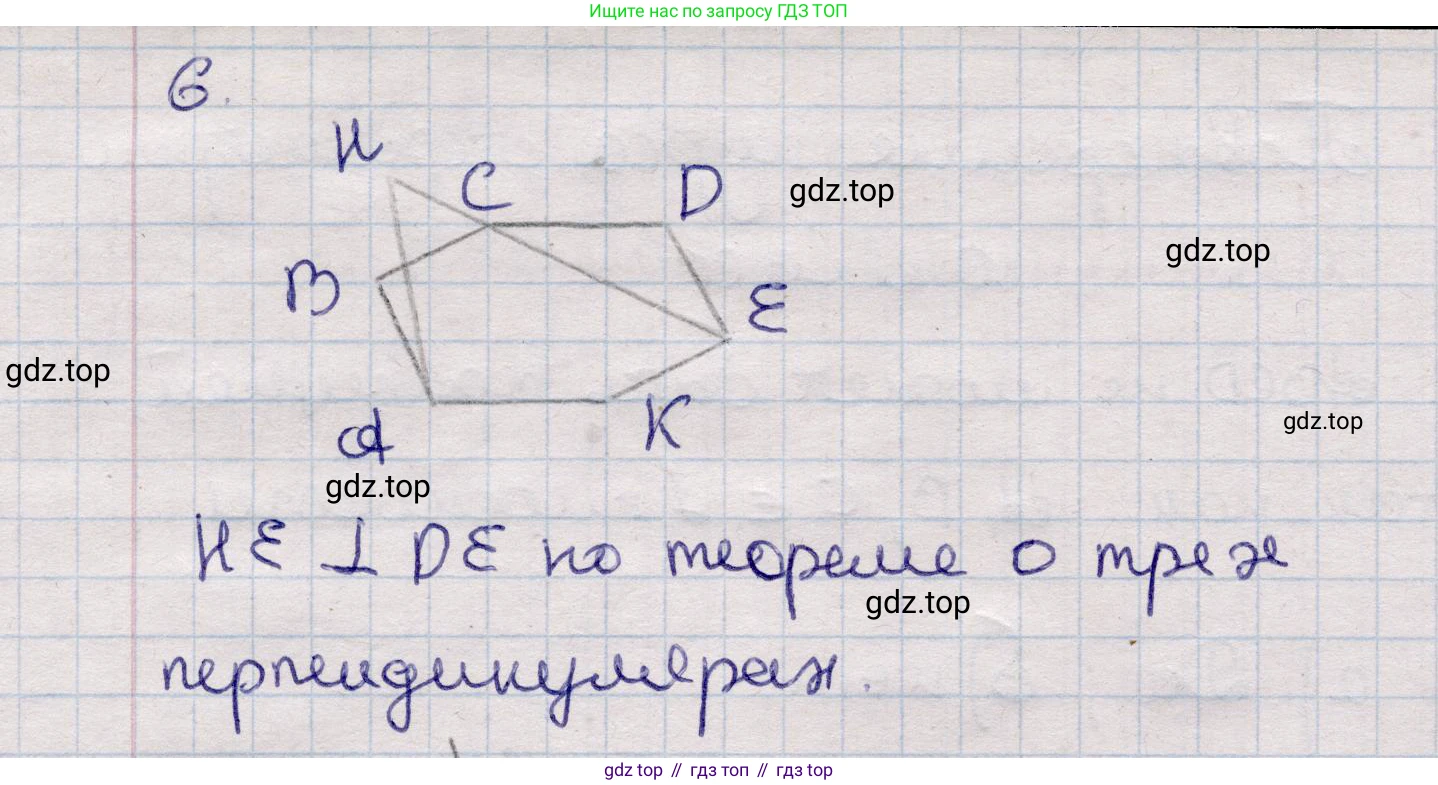 Ищите нас по запросу ГДЗ ТОП
6.
H
C
D
gdz.top
gdz.top
B
E
gdz.top
A
K
gdz.top
gdz.top
HE ⊥ DE по теореме о трех
gdz.top
перпендикулярах.
gdz top // гдз топ // gdz top